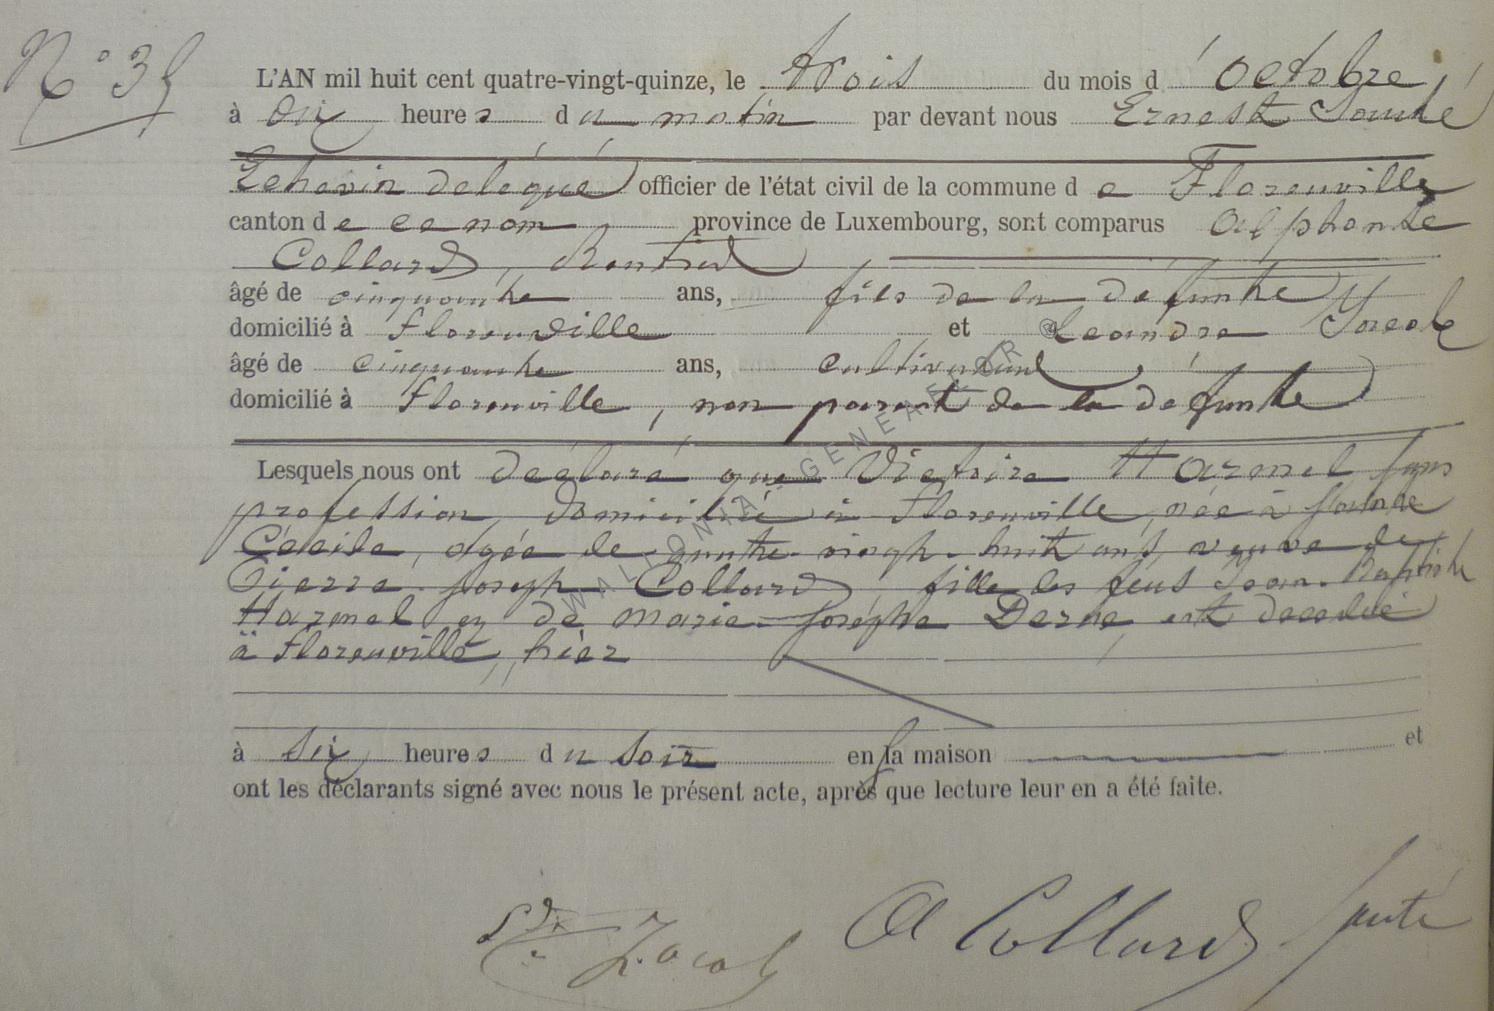 N° 35
L'AN mil huit cent quatre-vingt-quinze, le trois du mois d'octobre
à dix heures du matin par devant nous Ernest
Echevin délégué officier de l'état civil de la commune de Florenville
canton de ce nom province de Luxembourg, sont comparus Alphonse
Collard, Rentier
âgé de cinquante ans, fils de la défunte
domicilié à Florenville et Léandre Jacob
âgé de cinquante ans, cultivateur
domicilié à Florenville, non parent de la défunte
Lesquels nous ont déclaré que Victoire Harmel sans
profession, domiciliée à Florenville, née à Sainte
Cécile, agée de quatre-vingt-huit ans, veuve de
Pierre Joseph Collard, fille des feus Jean-Baptiste
Harmel et de Marie-Josèphe est décédée
à Florenville, hier
à six heures du soir en sa maison et
ont les déclarants signé avec nous le présent acte, après que lecture leur en a été faite.
Jacob A Collard
WALLONIA - GENEAFLOR